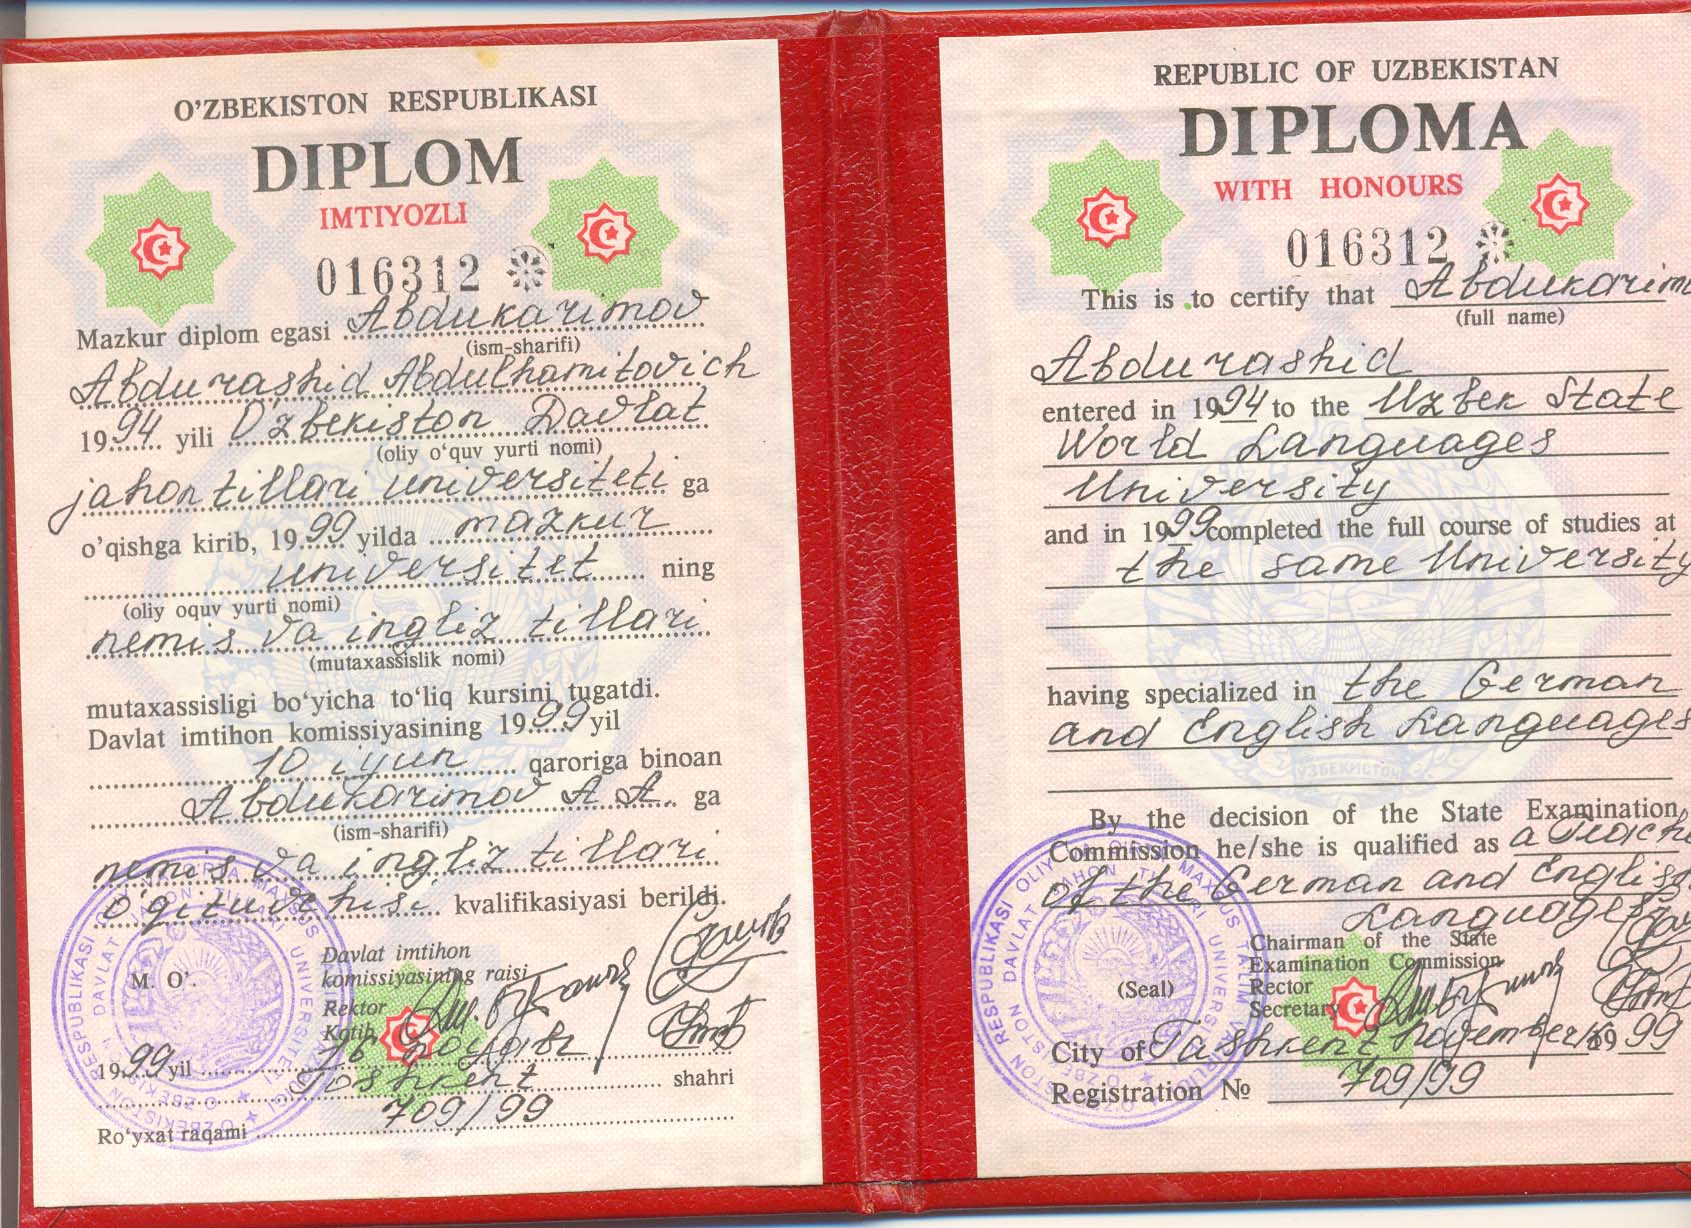 O'ZBEKISTON RESPUBLIKASI
DIPLOM
IMTIYOZLI
016312
Mazkur diplom egasi Abdukarimov
(ism-sharifi)
Abdurashid Abdulhamitovich
1994 yili O'zbekiston Davlat
(oliy o‘quv yurti nomi)
jahon tillari universiteti ga
o'qishga kirib, 1999 yilda mazkur
universitet ning
(oliy oquv yurti nomi)
nemis va ingliz tillari
(mutaxassislik nomi)
mutaxassisligi bo‘yicha to‘liq kursini tugatdi.
Davlat imtihon komissiyasining 1999 yil
10 iyun qaroriga binoan
Abdukarimov A A. ga
(ism-sharifi)
nemis va ingliz tillari
o'qituvchisi kvalifikasiyasi berildi.
Davlat imtihon
komissiyasining raisi
M. O'.
Rektor
Kotib
1999 yil 16 noyabr
Toshkent shahri
709/99
Ro‘yxat raqami
REPUBLIC OF UZBEKISTAN
DIPLOMA
WITH HONOURS
016312
This is to certify that Abdukarim
(full name)
Abdurashid
entered in 1994 to the Uzbek State
World Languages
University
and in 1999 completed the full course of studies at
the same University
having specialized in the German
and English Languages
ЎЗБЕКИСТОН
By the decision of the State Examination
Commission he/she is qualified as a Teach
of the German and English
Languages
Chairman of the State
Examination Commission
(Seal)
Rector
Secretary
City of Tashkent November 16 1999
Registration No 709/99